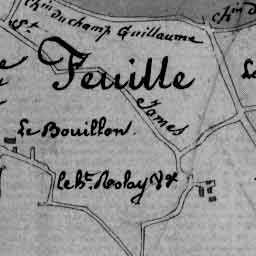 Chin du champ Guillaume
Chin d
St
Feuille
James
Le Bouillon.
le ht. Rolay